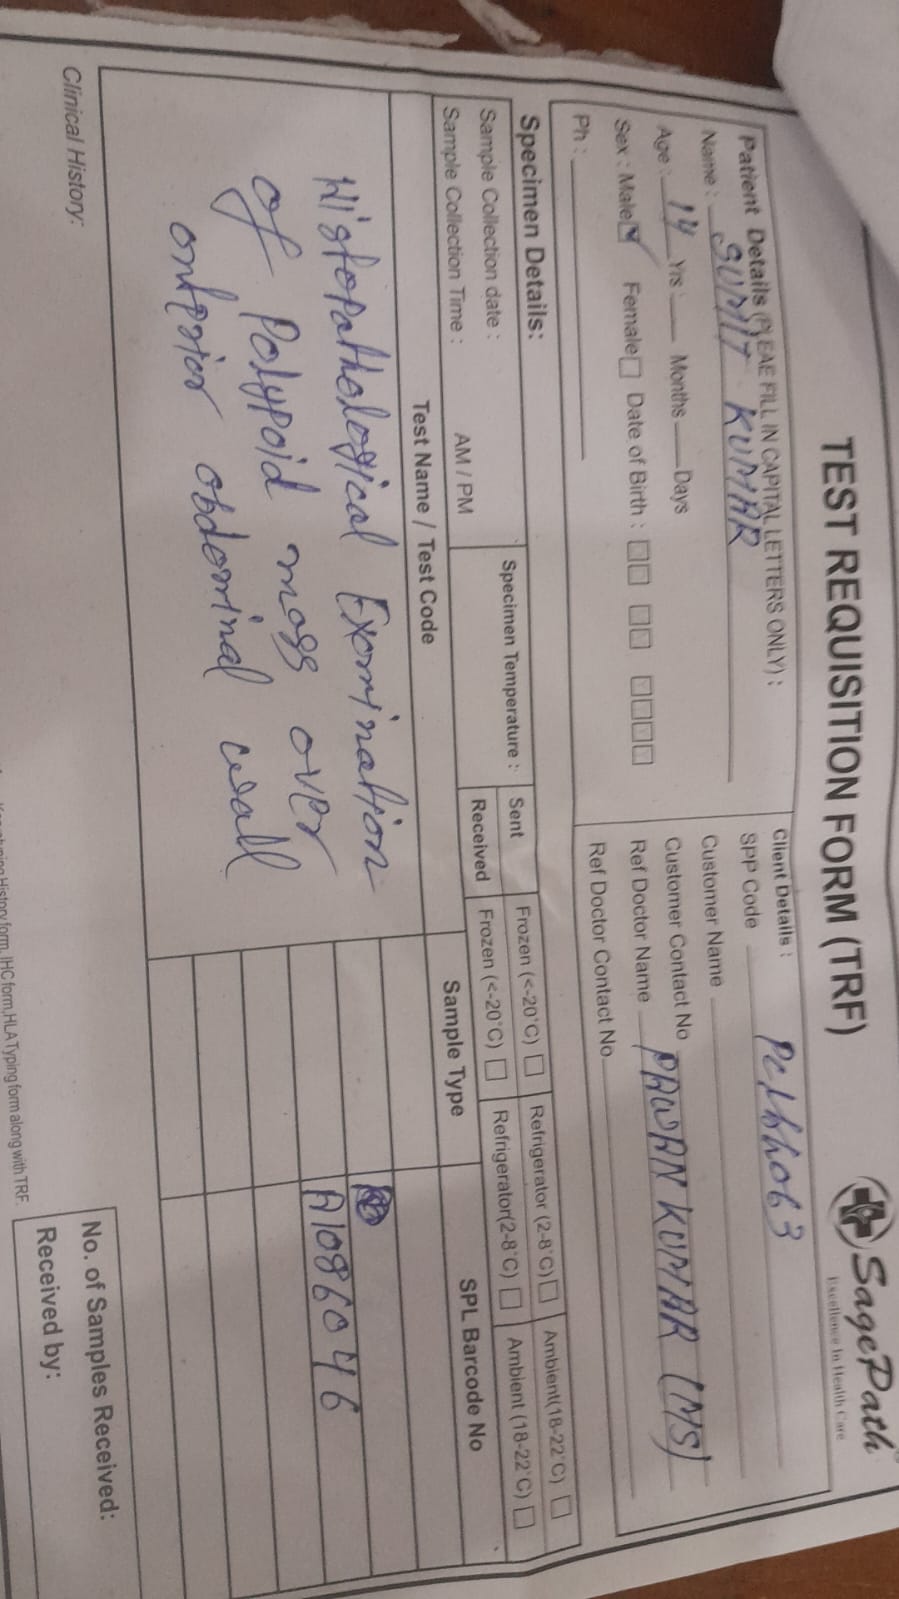 TEST REQUISITION FORM (TRF)
SagePath
Excellence In Health Care
Patient Details (PLEAE FILL IN CAPITAL LETTERS ONLY) :
Name : SUMIT KUMAR
Age : 14 Yrs : Months Days
Sex : Male ☑ Female ☐ Date of Birth : ☐☐ ☐☐ ☐☐☐☐
Ph :
Client Details :
SPP Code
Customer Name
Customer Contact No
Ref Doctor Name PAWAN KUMAR (MS)
Ref Doctor Contact No
Specimen Details:
Sample Collection date :
Sample Collection Time : AM / PM
Specimen Temperature :
Sent Frozen (<-20°C) ☐ Refrigerator (2-8°C) ☐ Ambient(18-22°C) ☐
Received Frozen (<-20°C) ☐ Refrigerator(2-8°C) ☐ Ambient (18-22°C) ☐
Test Name / Test Code Sample Type SPL Barcode No
Histopathological Examination
of Polypoid mass over
anterior abdominal wall
A1086046
Clinical History:
History form, IHC form, HLA Typing form along with TRF.
No. of Samples Received:
Received by: